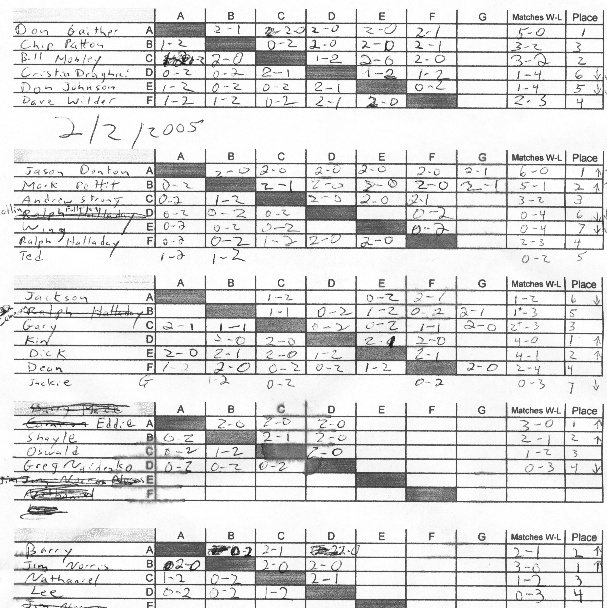 A B C D E F G Matches W-L Place
Don Gaither A 2-1 2-0 2-0 2-0 2-1 5-0 1
Chip Patton B 1-2 0-2 2-0 2-0 2-1 3-2 3
Bill Mobley C 2-0 1-2 2-0 2-0 3-2 2
Cristian D 0-2 0-2 2-1 1-2 1-2 1-4 6 ↓
Don Johnson E 1-2 0-2 0-2 0-2 1-4 5 ↓
Dave Wilder F 1-2 1-2 0-2 2-1 2-0 2-3 4
2/2/2005
A B C D E F G Matches W-L Place
Jason Denton A 2-0 2-0 2-0 2-0 2-0 2-1 6-0 1 ↑
Mark Pettit B 0-2 2-1 2-0 2-0 2-0 2-1 5-1 2 ↑
Andrew Strong C 0-2 1-2 2-0 2-0 2-1 3-2 3
Ralph Halladay D 0-2 0-2 0-2 0-2 0-4 6 ↓
Wing E 0-2 0-2 0-2 0-2 0-4 7 ↓
Ralph Halladay F 0-2 0-2 1-2 2-0 2-0 2-3 4
Ted 1-2 1-2 0-2 5
A B C D E F G Matches W-L Place
Jackson A 1-2 0-2 2-1 1-2 6 ↓
Ralph Halladay B 1-1 0-2 1-2 0-2 2-1 5
Gary C 2-1 1-1 0-2 0-2 1-1 2-0 2-3 3
Kin D 2-0 2-0 2-1 2-0 4-0 1 ↑
Dick E 2-0 2-1 2-0 1-2 2-1 4-1 2 ↑
Dean F 1-2 2-0 0-2 0-2 1-2 2-0 2-4 4
Jackie G 1-2 0-2 0-2 0-3 7 ↓
A B C D E F G Matches W-L Place
Eddie A 2-0 2-0 2-0 3-0 1 ↑
Shoyle B 0-2 2-1 2-0 2-1 2 ↑
Oswald C 0-2 1-2 2-0 1-2 3
Greg Naidenko D 0-2 0-2 0-2 0-3 4 ↓
E
Nathaniel F
A B C D E F G Matches W-L Place
Barry A 0-2 2-1 2-0 2-1 2 ↑
Jim Norris B 2-0 2-0 2-0 3-0 1 ↑
Nathaniel C 1-2 0-2 2-1 1-2 3
Lee D 0-2 0-2 1-2 0-3 4
E